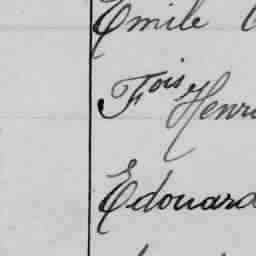 Emile
Fois Henri
Edouard